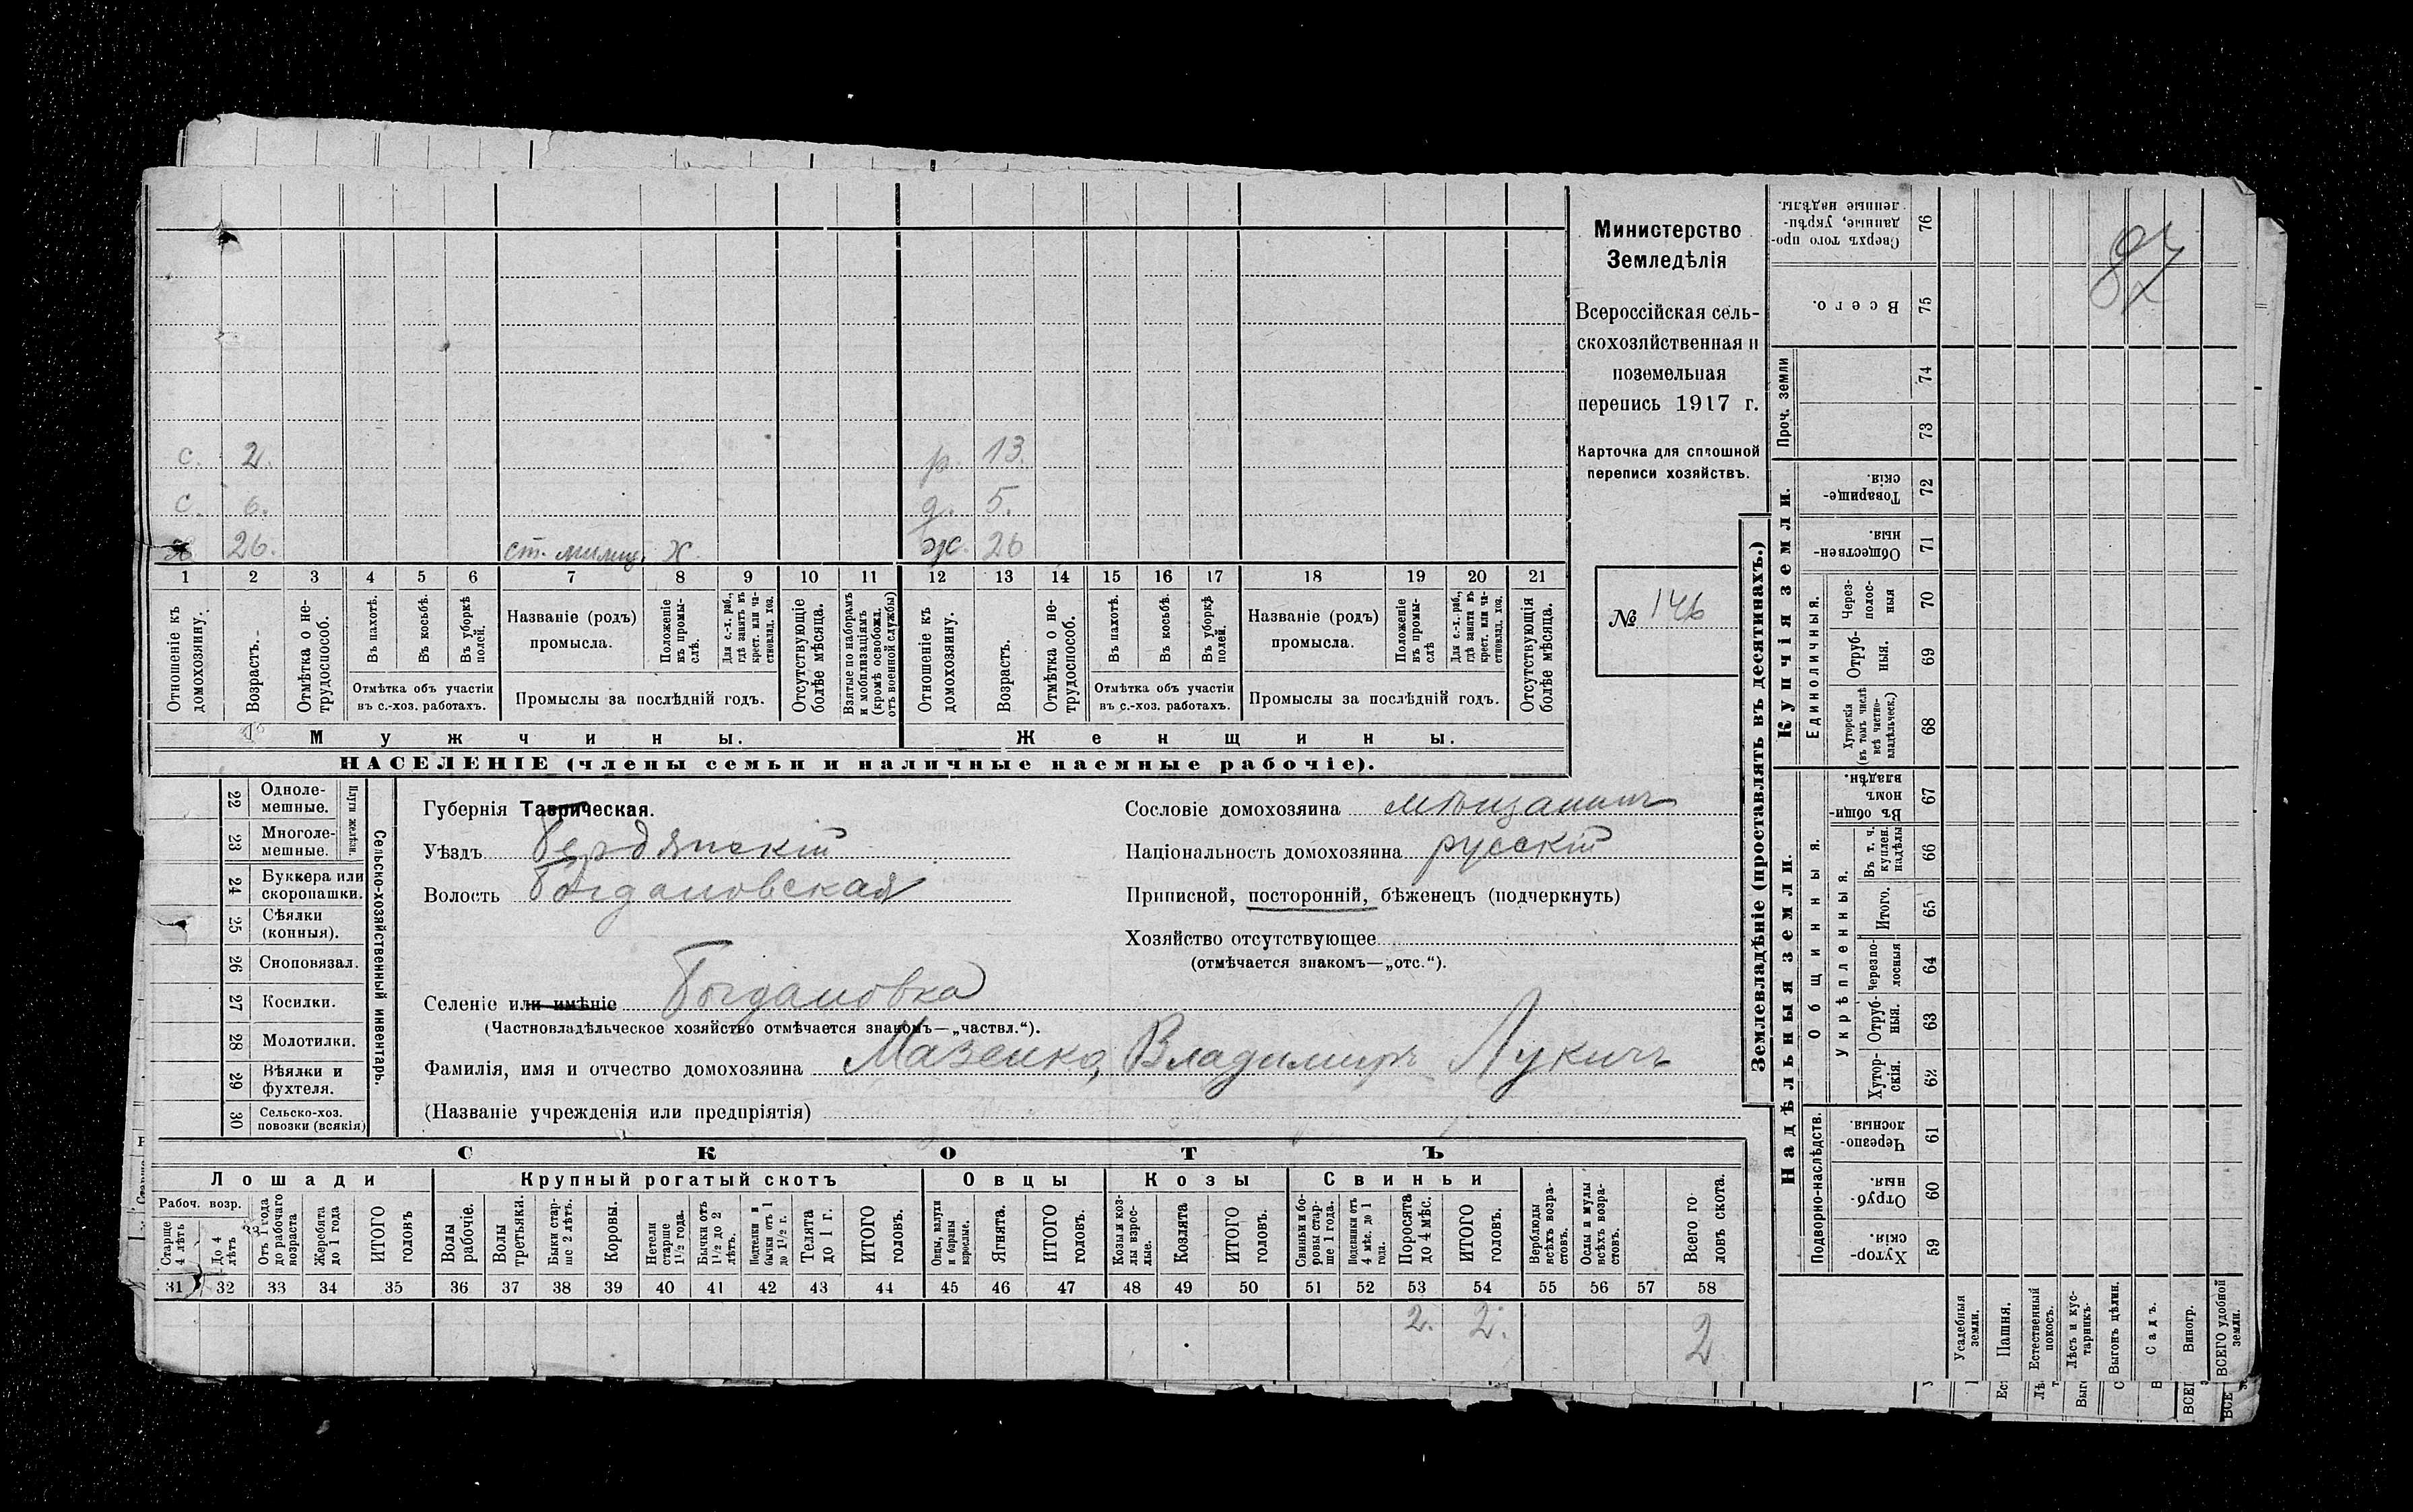 Министерство
Земледѣлія
Всероссійская сель-
скохозяйственная и
поземельная
перепись 1917 г.
Карточка для сплошной
переписи хозяйствъ.
№ 146
с. 2. р. 13.
с. 6. д. 5.
х 26. ст. милиц. х. ж. 26
1 2 3 4 5 6 7 8 9 10 11 12 13 14 15 16 17 18 19 20 21
Отношеніе къ домохозяину.
Возрастъ.
Отмѣтка о не-трудоспособ.
Въ пахотѣ.
Въ косьбѣ.
Въ уборкѣ полей.
Отмѣтка объ участіи
въ с.-хоз. работахъ.
Названіе (родъ)
промысла.
Положеніе въ промы-слѣ.
Для с.-х. раб., гдѣ занятъ въ крест. или ча-стновлад. хоз.
Промыслы за послѣдній годъ.
Отсутствующіе болѣе мѣсяца.
Взятые по наборамъ и мобилизаціямъ (кромѣ освобожд. отъ военной службы)
Отношеніе къ домохозяину.
Возрастъ.
Отмѣтка о не-трудоспособ.
Въ пахотѣ.
Въ косьбѣ.
Въ уборкѣ полей.
Отмѣтка объ участіи
въ с.-хоз. работахъ.
Названіе (родъ)
промысла.
Положеніе въ промы-слѣ
Для с.-х. раб., гдѣ занята въ крест. или ча-стновлад. хоз.
Промыслы за послѣдній годъ.
Отсутствующія болѣе мѣсяца.
Мужчины. Женщины.
НАСЕЛЕНІЕ (члены семьи и наличные наемные рабочіе).
22 Одноле-мешные.
23 Многоле-мешные.
Плуги желѣзн.
24 Буккера или скоропашки.
25 Сѣялки (конныя).
26 Сноповязал.
27 Косилки.
28 Молотилки.
29 Вѣялки и фухтеля.
30 Сельско-хоз. повозки (всякія)
Сельско-хозяйственный инвентарь.
Губернія Таврическая.
Уѣздъ Бердянскій
Волость Богдановская
Селеніе или имѣніе Богдановка
(Частновладѣльческое хозяйство отмѣчается знакомъ—„частвл.“).
Фамилія, имя и отчество домохозяина Мазенко, Владимиръ Лукичъ
(Названіе учрежденія или предпріятія)
Сословіе домохозяина мѣщанинъ
Національность домохозяина русскій
Приписной, посторонній, бѣженецъ (подчеркнуть)
Хозяйство отсутствующее
(отмѣчается знакомъ—„отс.“).
СКОТЪ
Лошади Крупный рогатый скотъ Овцы Козы Свиньи
Рабоч. возр.
Старше 4 лѣтъ
До 4 лѣтъ
Отъ 1 года до рабочаго возраста
Жеребята до 1 года
ИТОГО головъ
Волы рабочіе.
Волы третьяки.
Быки стар-ше 2 лѣтъ.
Коровы.
Нетели старше 1½ года.
Бычки отъ 1½ до 2 лѣтъ.
Нетелки и бычки отъ 1 до 1½ г.
Телята до 1 г.
ИТОГО головъ.
Овцы, валухи и бараны взрослые.
Ягнята.
ИТОГО головъ.
Козы и коз-лы взрос-лые.
Козлята
ИТОГО головъ.
Свиньи и бо-ровы стар-ше 1 года.
Подсвинки отъ 4 мѣс. до 1 года.
Поросята до 4 мѣс.
ИТОГО головъ.
Верблюды всѣхъ возра-стовъ.
Ослы и мулы всѣхъ возра-стовъ.
Всего го-ловъ скота.
31 32 33 34 35 36 37 38 39 40 41 42 43 44 45 46 47 48 49 50 51 52 53 54 55 56 57 58
2. 2. 2
Землевладѣніе (проставлять въ десятинахъ.)
Надѣльныя земли. Купчія земли.
Подворно-наслѣдств.
Общинныя.
Укрѣпленныя.
Единоличныя.
Проч. земли
Сверхъ того про-данные, укрѣп-ленные надѣлы. 76
Всего. 75
74
73
Товарище-скія. 72
Обществен-ныя. 71
Через-полос-ныя 70
Отруб-ныя. 69
Хуторскія (въ томъ числѣ всѣ частно-владѣльческ.) 68
Въ общин-номъ владѣн. 67
Въ т. ч. куплен. надѣлы 66
Итого. 65
Черезпо-лосныя 64
Отруб-ныя. 63
Хутор-скія. 62
Черезпо-лосныя. 61
Отруб-ныя. 60
Хутор-скія. 59
Усадебныя земли.
Пашня.
Естественный покосъ.
Лѣсъ и кус-тарникъ.
Выгонъ цѣлин.
Садъ.
Виногр.
ВСЕГО удобной земли.